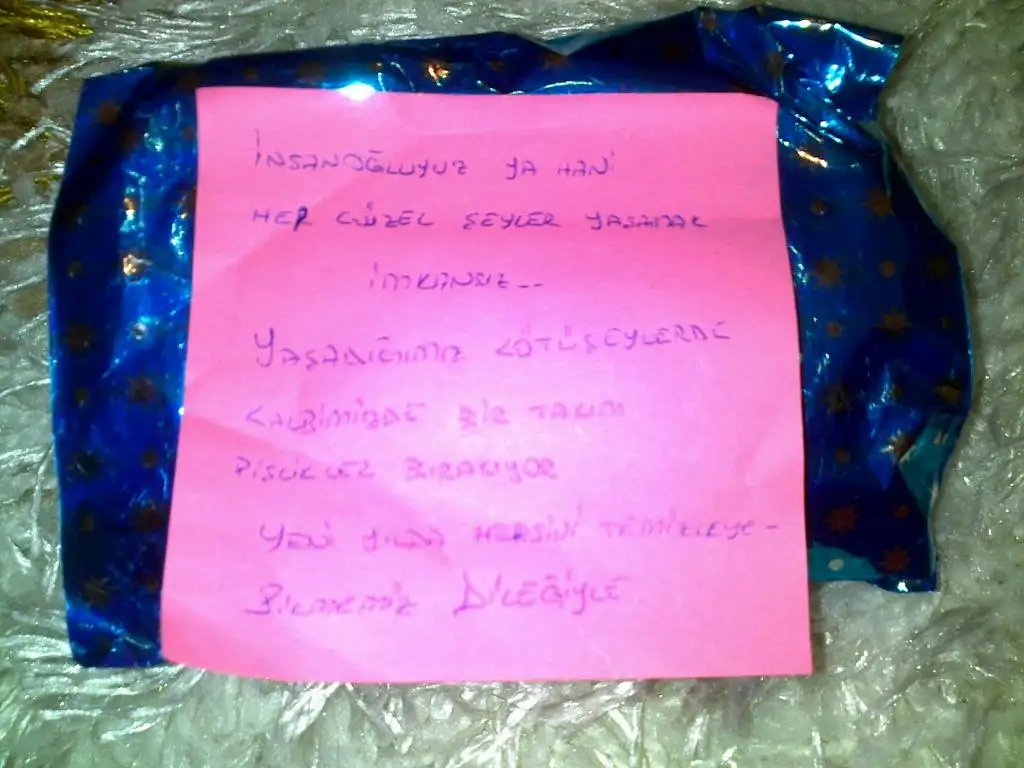 İNSANOĞLUYUZ YA HANİ
HER GÜZEL ŞEYLER YAŞAMAK
İMKANSIZ...
YAŞADIĞIMIZ KÖTÜ ŞEYLERDE
KALBİMİZDE BİR TAKIM
PİSLİKLER BIRAKIYOR
YENİ YILDA HEPSİNİ TEMİZLEYE-
BİLMEMİZ DİLEĞİYLE